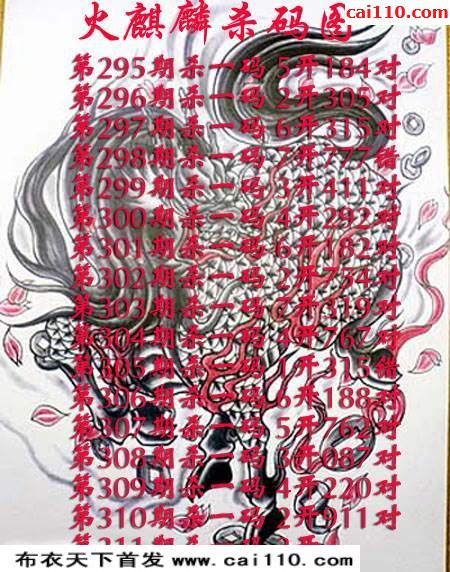 cai110.com
火麒麟杀码图
第295期杀一码 5开184对
第296期杀一码 2开305对
第297期杀一码 6开315对
第298期杀一码 7开777错
第299期杀一码 3开411对
第300期杀一码 4开292对
第301期杀一码 6开182对
第302期杀一码 2开754对
第303期杀一码 开319对
第304期杀一码 4开767对
第305期杀一码 1开315错
第306期杀一码 6开188对
第307期杀一码 5开762对
第308期杀一码 开087对
第309期杀一码 4开220对
第310期杀一码 2开911对
布衣天下首发 www.cai110.com